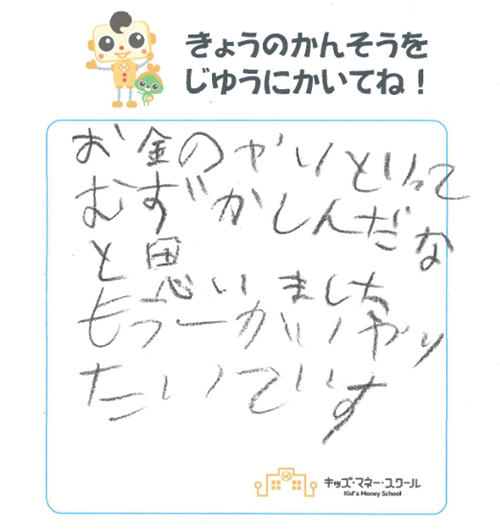 きょうのかんそうを
じゆうにかいてね！
お金のやりとりって
むずかしんだな
と思いました
もう一かいやり
たいでいす
キッズ・マネー・スクール
Kid's Money School